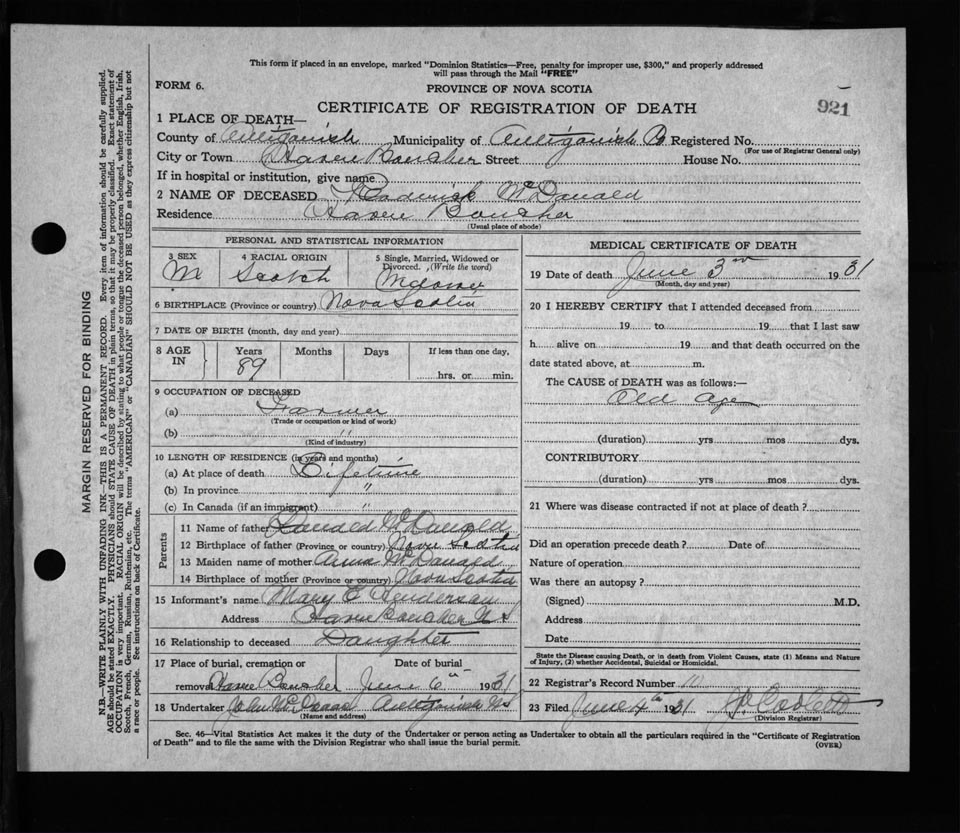 This form if placed in an envelope, marked "Dominion Statistics—Free, penalty for improper use, $300," and properly addressed
will pass through the Mail "FREE"
FORM 6.
PROVINCE OF NOVA SCOTIA
921
CERTIFICATE OF REGISTRATION OF DEATH
1 PLACE OF DEATH—
County of Antigonish Municipality of Antigonish Co Registered No.
(For use of Registrar General only)
City or Town Havre Boucher Street House No.
If in hospital or institution, give name
2 NAME OF DECEASED Roderick McDonald
Residence Havre Boucher
(Usual place of abode)
PERSONAL AND STATISTICAL INFORMATION
3 SEX 4 RACIAL ORIGIN 5 Single, Married, Widowed or
Divorced. (Write the word)
M Scotch Widower
6 BIRTHPLACE (Province or country) Nova Scotia
7 DATE OF BIRTH (month, day and year)
8 AGE IN Years Months Days If less than one day,
89 hrs. or min.
9 OCCUPATION OF DECEASED
(a) Farmer
(Trade or occupation or kind of work)
(b) "
(Kind of industry)
10 LENGTH OF RESIDENCE (in years and months)
(a) At place of death Lifetime
(b) In province "
(c) In Canada (if an immigrant) "
Parents
11 Name of father Donald McDonald
12 Birthplace of father (Province or country) Nova Scotia
13 Maiden name of mother Anna McDonald
14 Birthplace of mother (Province or country) Nova Scotia
15 Informant's name Mary E Henderson
Address Havre Boucher N S
16 Relationship to deceased Daughter
17 Place of burial, cremation or Date of burial
removal Havre Boucher June 6th 1931
18 Undertaker John McIsaac Antigonish NS
(Name and address)
MEDICAL CERTIFICATE OF DEATH
19 Date of death June 3rd 1931
(Month, day and year)
20 I HEREBY CERTIFY that I attended deceased from
19 to 19 that I last saw
h alive on 19 and that death occurred on the
date stated above, at m.
The CAUSE of DEATH was as follows:—
Old Age
(duration) yrs mos dys.
CONTRIBUTORY
(duration) yrs mos dys.
21 Where was disease contracted if not at place of death?
Did an operation precede death? Date of
Nature of operation
Was there an autopsy?
(Signed) M.D.
Address
Date
State the Disease causing Death, or in death from Violent Causes, state (1) Means and Nature
of Injury, (2) whether Accidental, Suicidal or Homicidal.
22 Registrar's Record Number 11
23 Filed June 4th 1931
(Division Registrar)
Sec. 46—Vital Statistics Act makes it the duty of the Undertaker or person acting as Undertaker to obtain all the particulars required in the "Certificate of Registration
of Death" and to file the same with the Division Registrar who shall issue the burial permit.
(OVER)
MARGIN RESERVED FOR BINDING
N.B.—WRITE PLAINLY WITH UNFADING INK—THIS IS A PERMANENT RECORD. Every item of information should be carefully supplied.
AGE should be stated EXACTLY. PHYSICIANS should STATE CAUSE OF DEATH in plain terms, so that it may be properly classified. Exact statement of
OCCUPATION is very important. RACIAL ORIGIN will be described by stating to what people or tongue the deceased person belonged, whether English, Irish,
Scotch, French, German, Russian, Ruthenian, etc. The terms "AMERICAN" or "CANADIAN" SHOULD NOT BE USED as they express citizenship but not
a race or people. See instructions on back of Certificate.